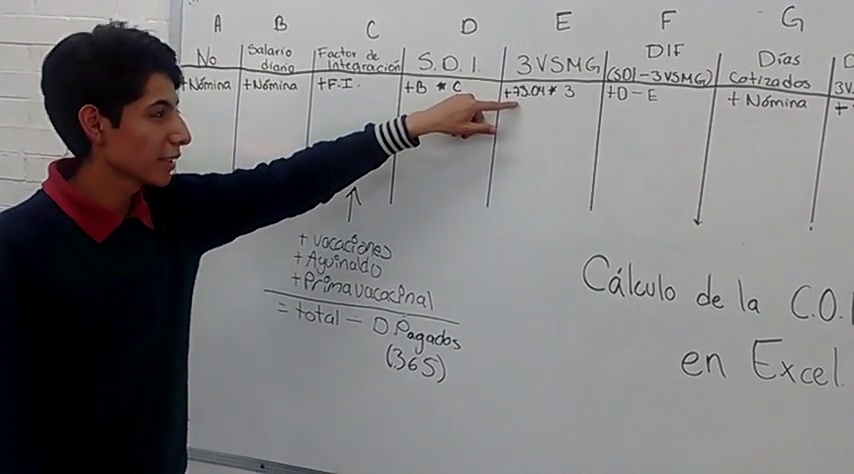 A B C D E F G
No Salario diario Factor de Integración S.D.I. 3VSMG DIF (SDI-3VSMG) Días Cotizados
+Nómina +Nómina +F.I. +B * C +73.04* 3 +D-E + Nómina
+ vacaciones
+ Aguinaldo
+ Prima vacacional
= total - D.Pagados
(365)
Cálculo de la C.O.
en Excel